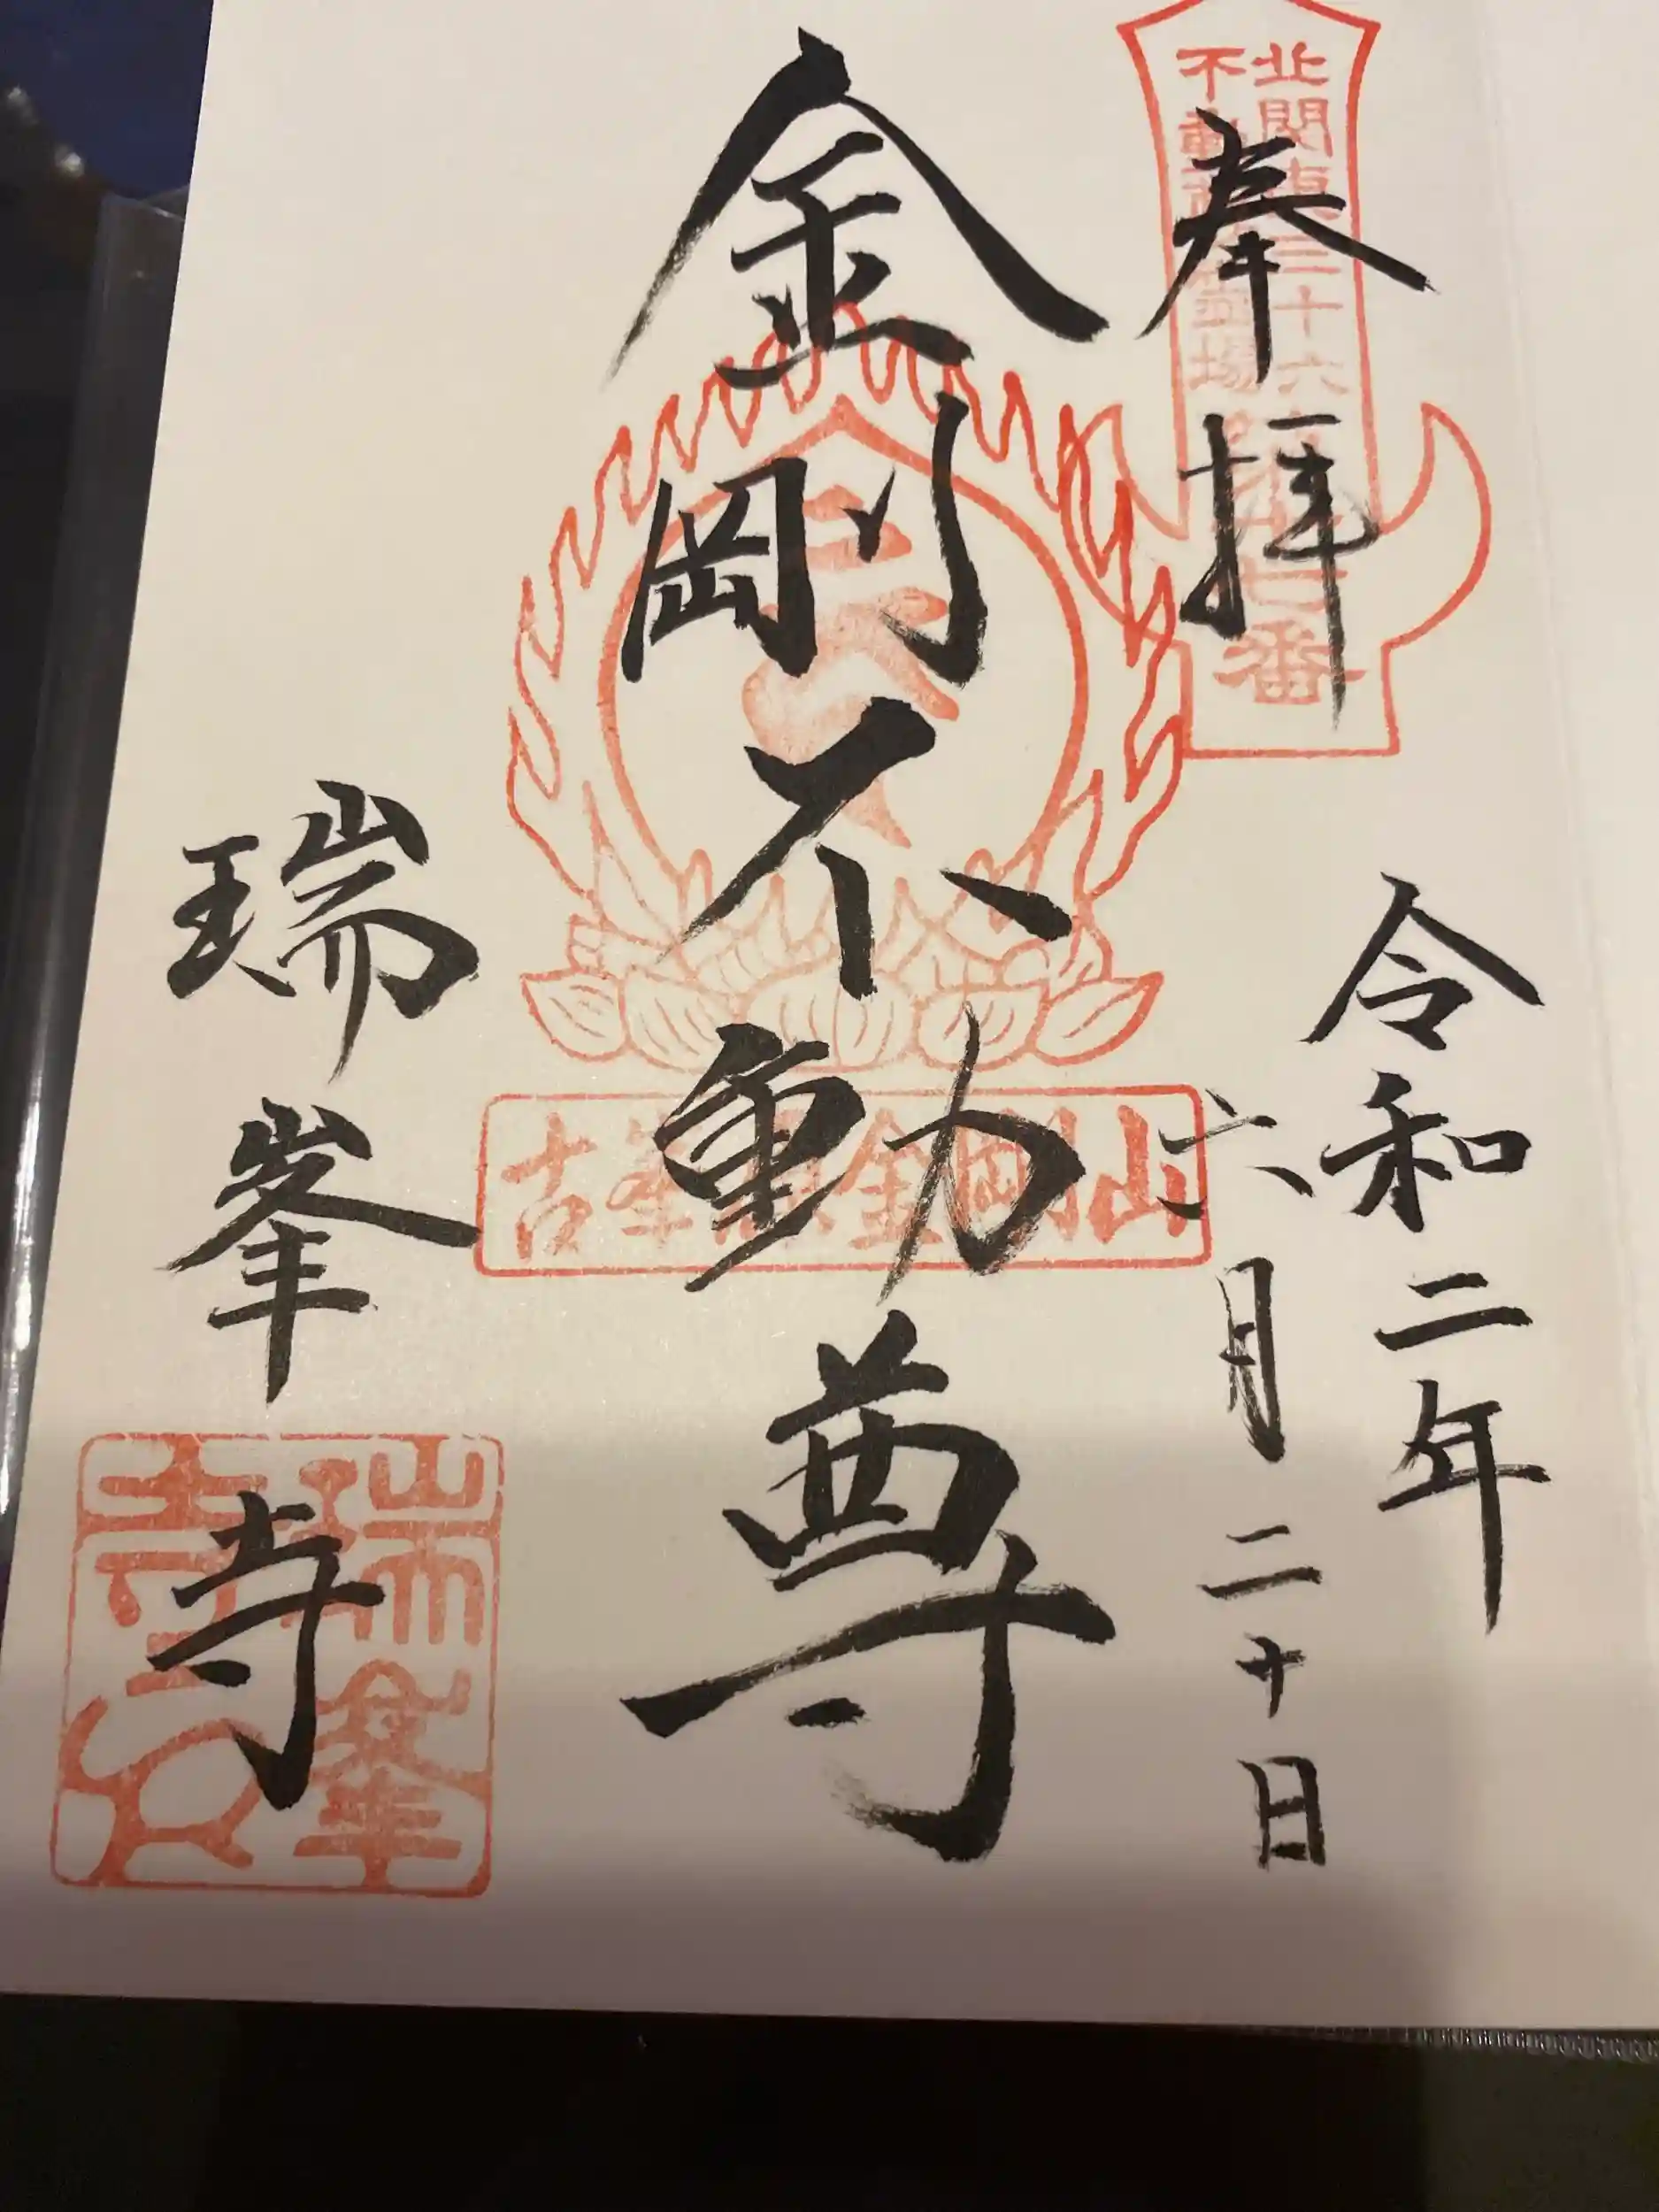 奉拝
令和二年
六月二十日
金剛不動尊
瑞峯寺
北関東三十六
不動尊霊場
番
古峰原金剛山
瑞峯
寺印